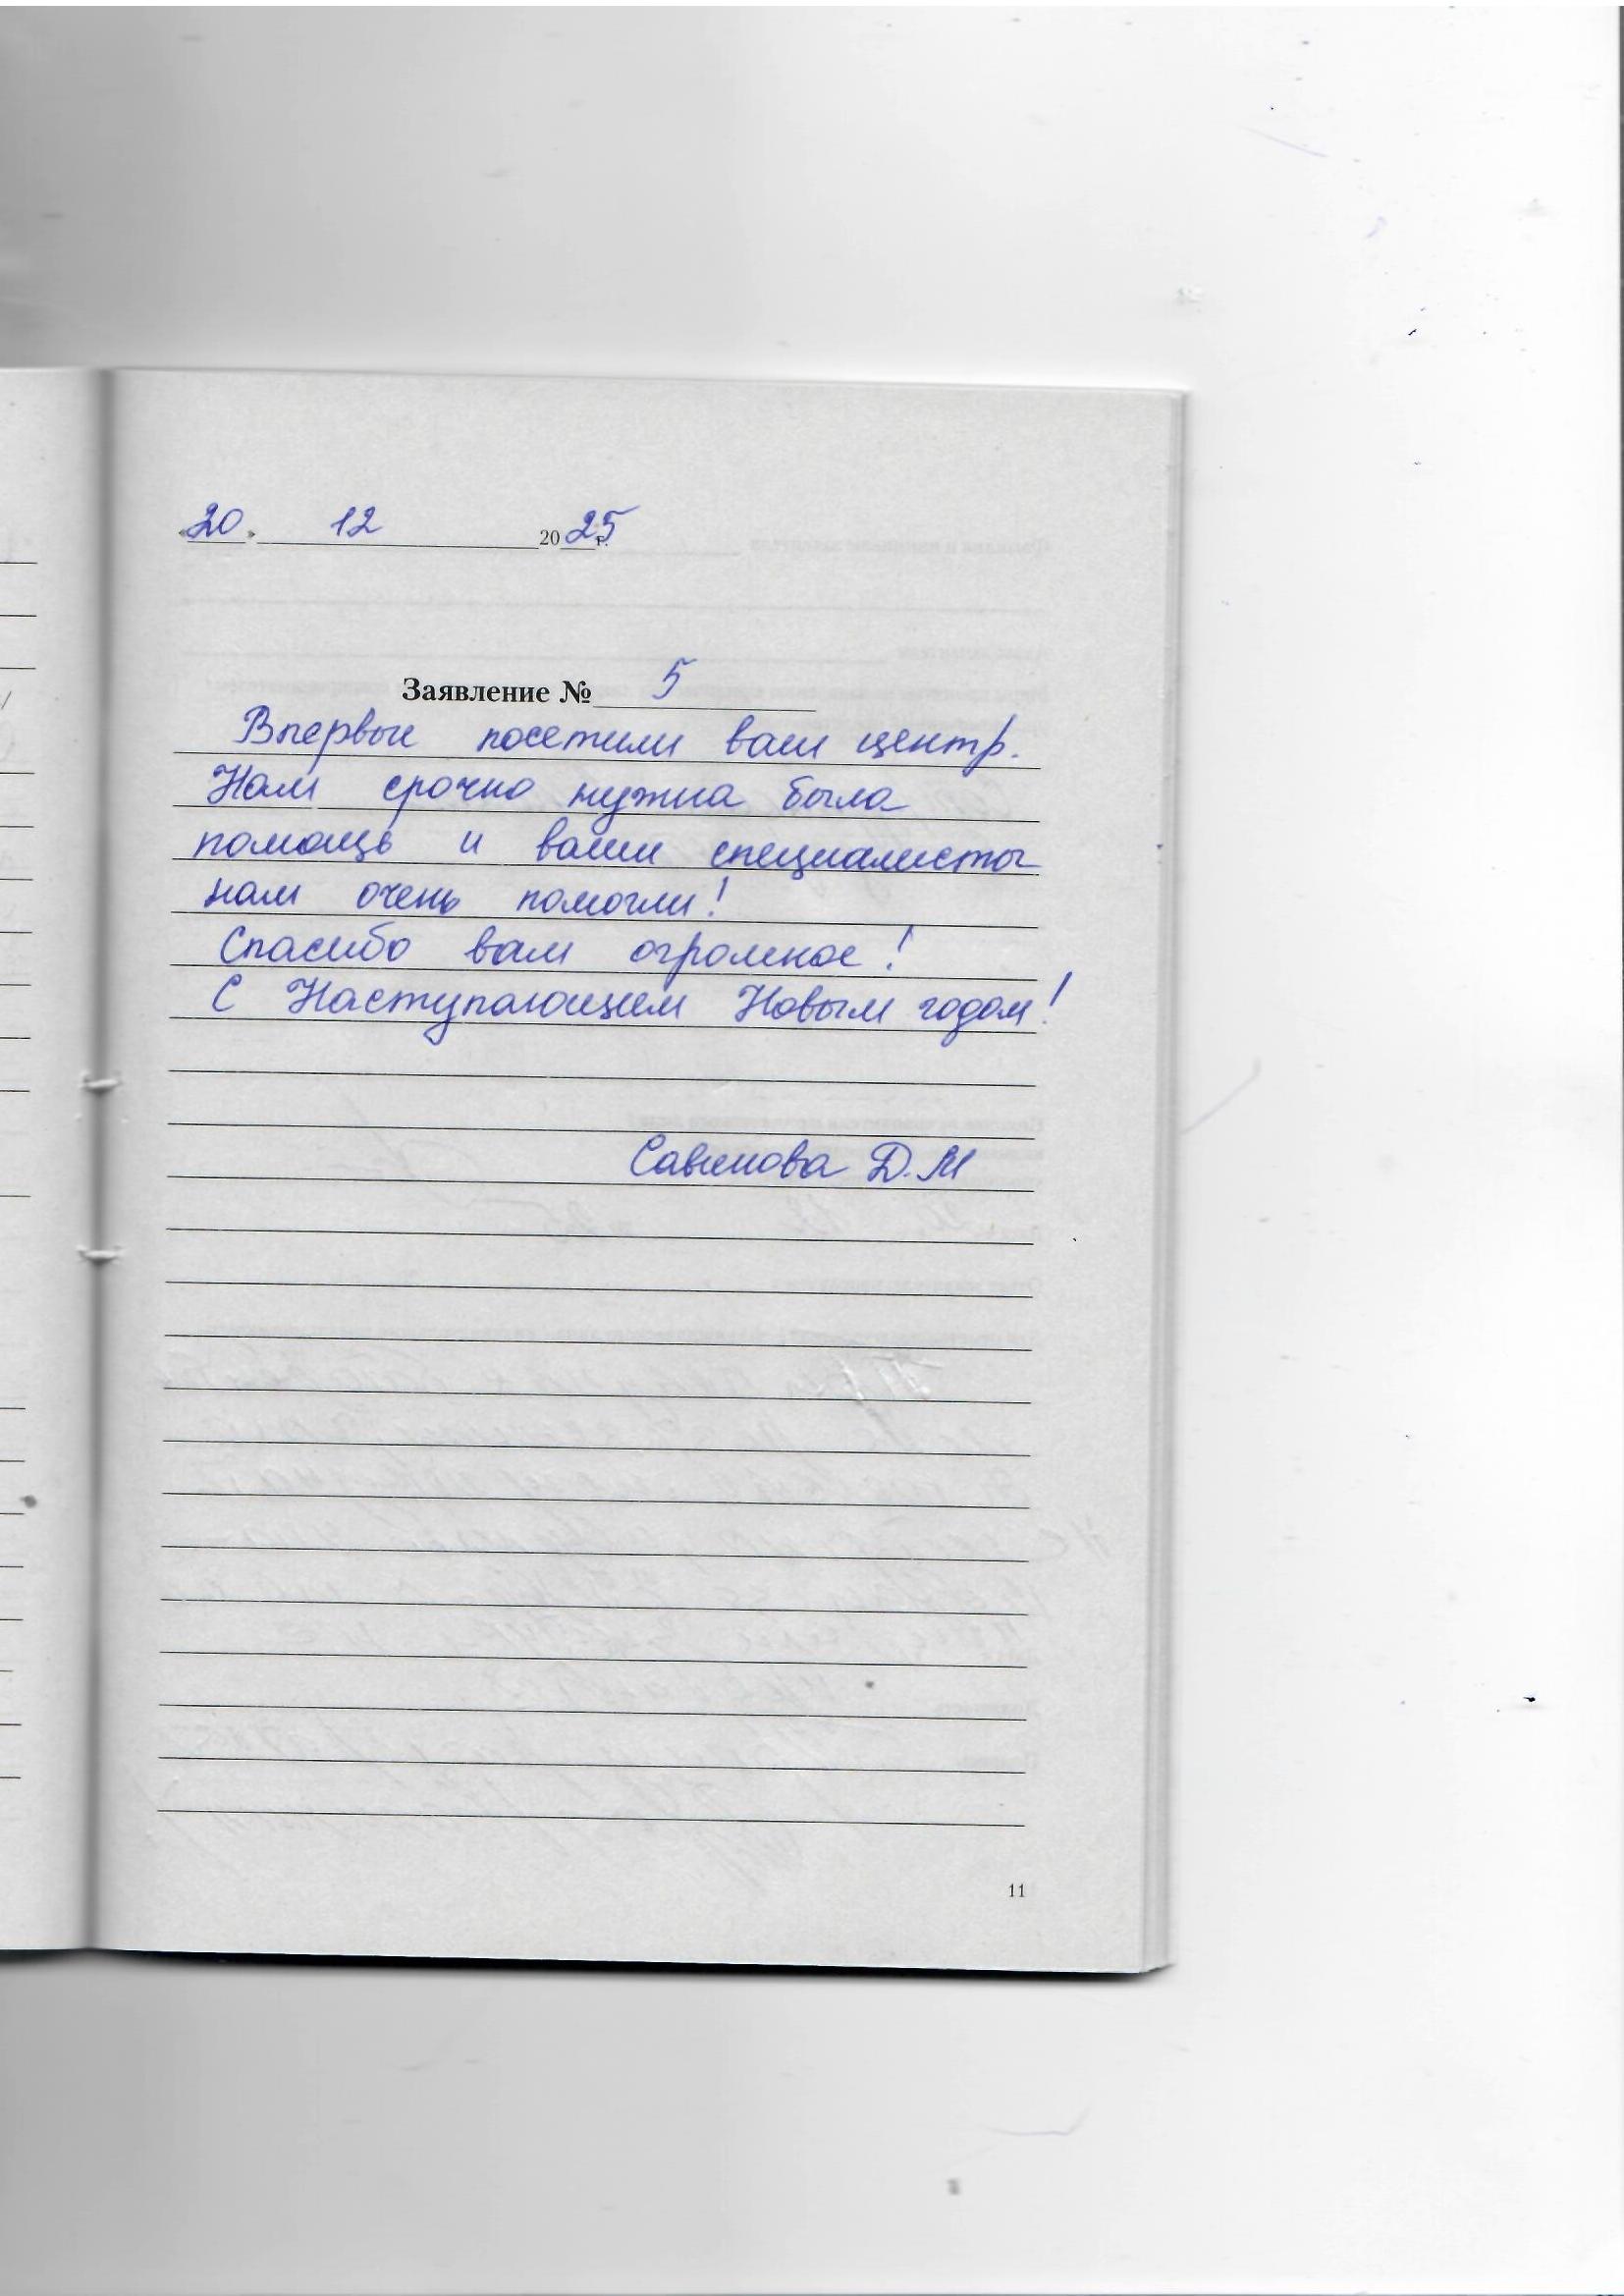 «20» 12 2025 г.
Заявление № 5
Впервые посетили ваш центр.
Нам срочно нужна была
помощь и ваши специалисты
нам очень помогли!
Спасибо вам огромное!
С Наступающим Новым годом!
Савинова Д.М
11